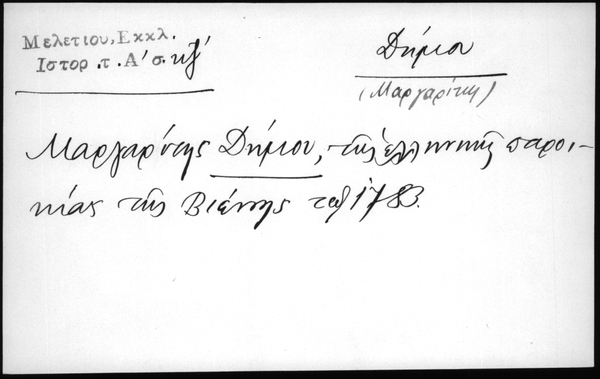 Μελετίου, Εκκλ.
Ιστορ. τ. Α' σ. κζ'
Δήμου
(Μαργαρίτη)
Μαργαρίτης Δήμου, τῆς ἑλληνικῆς παροι-
κίας τῆς Βιέννης τοῦ 1783.